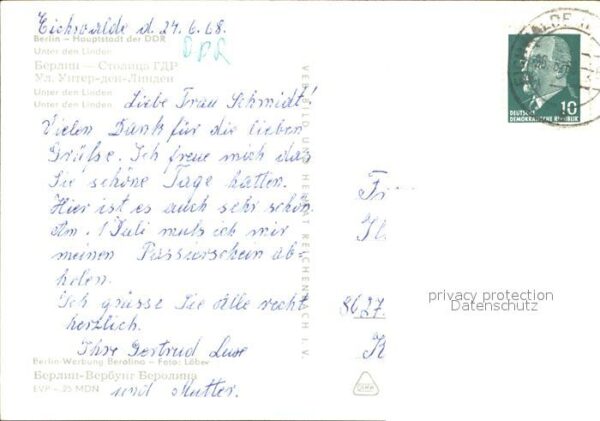 Eichwalde d. 24.6.68.
Berlin – Hauptstadt der DDR
Unter den Linden
Берлин – Столица ГДР
Ул. Унтер-ден-Линден
Unter den Linden
Unter den Linden
Liebe Frau Schmidt!
Vielen Dank für die lieben
Grüße. Ich freue mich das
Sie schöne Tage hatten.
Hier ist es auch sehr schön
Am. 1 Juli muß ich mir
meinen Passierschein ab
holen.
Ich grüsse Sie alle recht
herzlich.
Ihre Gertrud
und Mutter.
Berlin-Werbung Berolina – Foto: Löber
Берлин-Вербунг Беролина
EVP –.25 MDN
REICHENBACH I. V.
10
DEUTSCHE
DEMOKRATISCHE REPUBLIK
8627.
privacy protection
Datenschutz